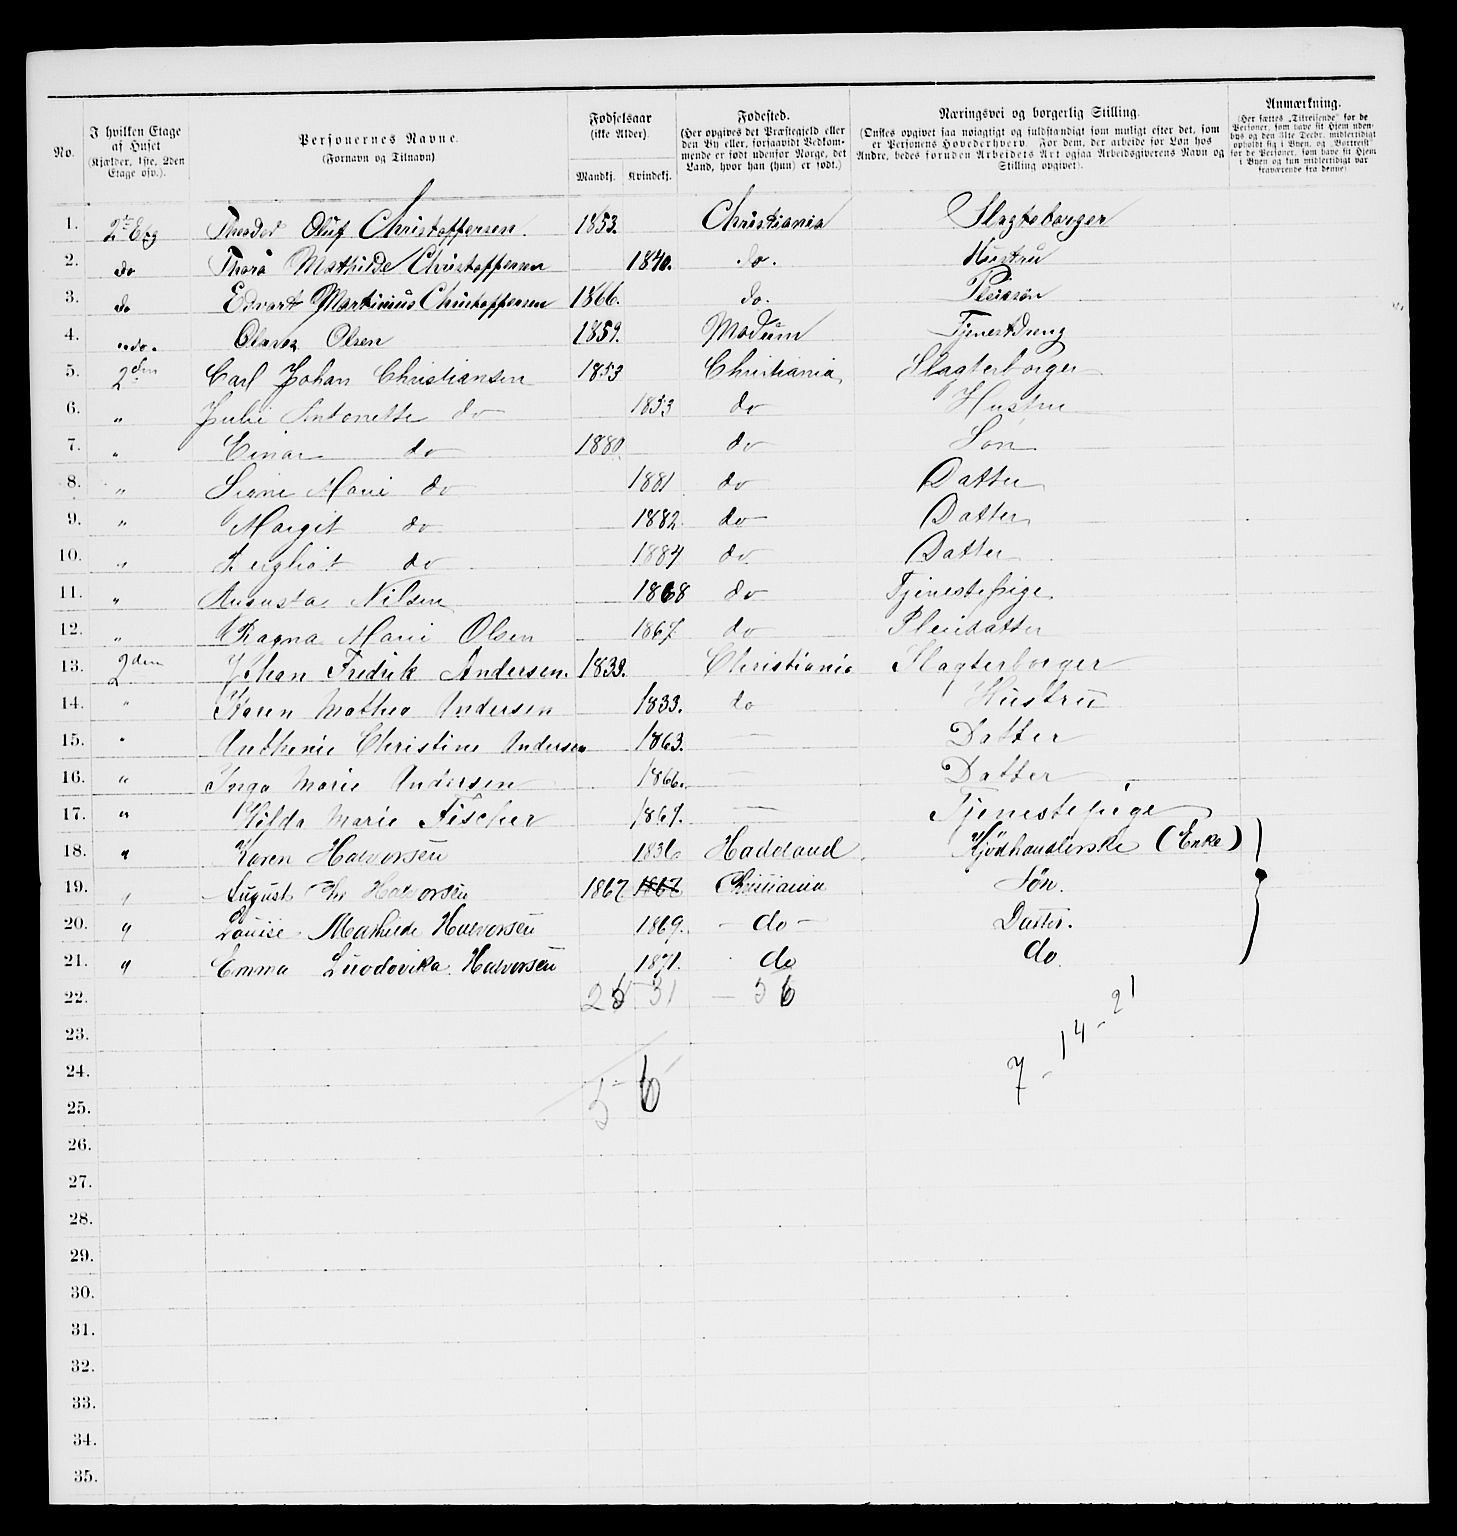 No.
I hvilken Etage af Huset (Kjælder, 1ste, 2den Etage osv.).
Personernes Navne. (Fornavn og Tilnavn)
Fødselsaar (ikke Alder). Mandkj. Kvindekj.
Fødested. (Her opgives det Præstegjeld eller den By eller, forsaavidt Vedkommende er født udenfor Norge, det Land, hvor han (hun) er født.)
Næringsvei og borgerlig Stilling. (Ønskes opgivet saa nøiagtigt og fuldstændigt som muligt efter det, som er Personens Hovederhverv. For dem, der arbeide for Løn hos Andre, bedes foruden Arbeidets Art ogsaa Arbeidsgiverens Navn og Stilling opgivet.)
Anmærkning. (Her sættes „Tilreisende" for de Personer, som have sit Hjem udenbys og den 31te Decbr. midlertidigt opholdt sig i Byen, og „Bortreist" for de Personer, som have sit Hjem i Byen og kun midlertidigt var fraværende fra denne)
1. 2. Etg Theodor Oluf Christoffersen. 1853. Christiania Slagteborger
2. do Thora Mathilde Christoffersen 1840. do. Hustru
3. do Edvard Martinius Christoffersen 1866. do. Pleiesøn
4. do. Olsen 1859. Modum Tjenestdreng
5. 2den Carl Johan Christiansen 1853 Christiania, Slagterborger
6. " Julie Antonette do 1853 do Hustru
7. " Einar do 1880. do Søn
8. " Signe Marie do 1881 do Datter
9. " Margit do 1882 do Datter
10. " do 1884 do Datter
11. " Augusta Nilsen 1868 do Tjenestepige
12. " Ragna Marie Olsen 1867 do Pleiedatter
13. 2den Johan Fredrik Andersen. 1833. Christiania Slagterborger
14. " Karen Mathea Andersen 1833. do Hustru
15. " Anthenie Christine Andersen 1863. — Datter
16. " Inga Marie Andersen 1866. — Datter
17. " Hilda Marie Fischer 1867. — Tjenestepige
18. " Karen Halvorsen 1836 Hadeland Kjødhandlerske (Enke)
19. " August Halvorsen 1867 1867 Christiania Søn.
20. " Louise Mathilde Halvorsen 1869. — do — Datter.
21. " Emma Luodovika Halvorsen 1871. do do.
22. 25 31 — 56
23. 7 - 14 - 21
24.
25. 5 - 6
26.
27.
28.
29.
30.
31.
32.
33.
34.
35.